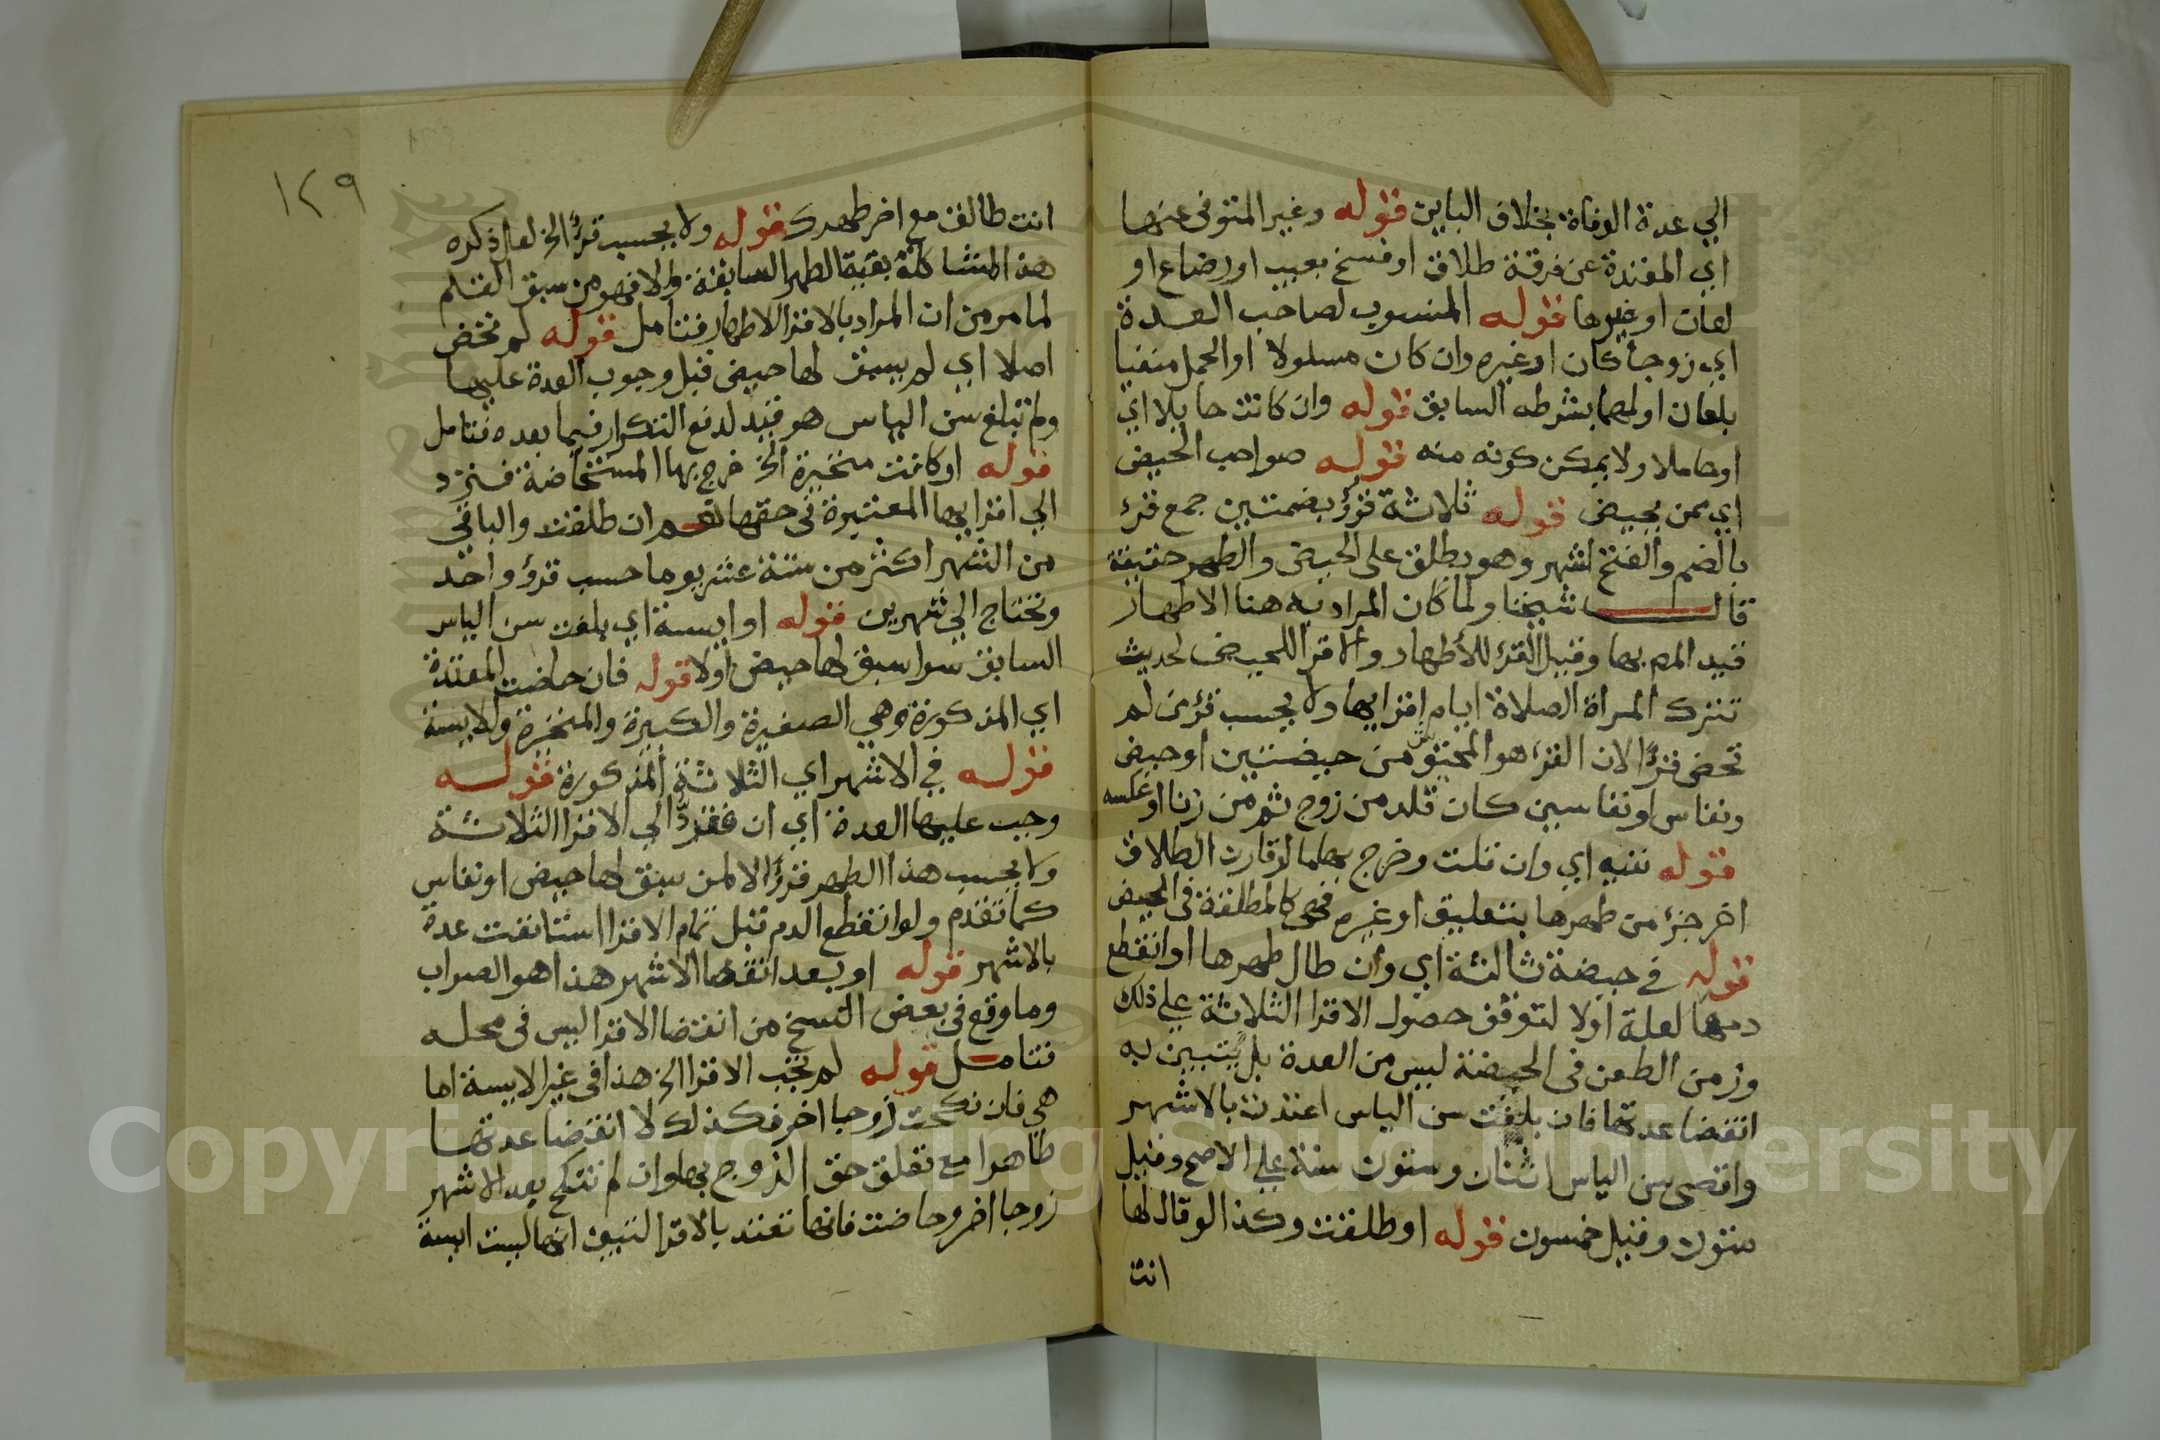 الي عدة الوفاة بخلاف الباين قوله وغير المتوفى عنها
اي المعتدة عن فرقة طلاق او فسخ بعيب او رضاع او
لعان او غيرها قوله المنسوب لصاحب العدة
اي زوجا كان او غيره وان كان مسلولا او الحمل منفيا
بلعان او لهما بشرطه السابق قوله وان كانت حايلا اي
او حاملا ولا يمكن كونه منه قوله صواحب الحيض
اي ممن يحيض قوله ثلاثة قرؤ بضمتين جمع قرء
بالضم والفتح اشهر وهو يطلق على الحيض والطهر حقيقة
قال شيخنا ولما كان المراد به هنا الاطهار
قيد المص بها وقيل القرء للأطهار والاقرا للحيض لحديث
تترك المراة الصلاة ايام اقرايها ولا يحسب قرء من لم
تحض قرءا لان القرء هو المحتوش من حيضتين او حيض
ونفاس او نفاسين كان تلد من زوج ثم من زنا او عكسه
قوله بقيه اي وان قلت وخرج بها ما لو قارن الطلاق
اخر جزء من طهرها بتعليق او غيره فهي كالمطلقة في الحيض
قوله في حيضة ثالثة اي وان طال طهرها او انقطع
دمها لعلة اولا لتوقف حصول الاقرا الثلاثة علي ذلك
وزمن الطعن فى الحيضة ليس من العدة بل يتبين به
انقضا عدتها فان بلغت سن الياس اعتدت بالاشهر
واقصى سن الياس اثنان وستون سنة علي الاصح وقيل
ستون وقيل خمسون قوله او طلقت وكذا لو قال لها
انت
١٢٩
انت طالق مع اخر طهرك قوله ولا يحسب قرءا الخ لعل ذكره
هذا لمشاكلة بقية الطهر السابقة والا فهو من سبق القلم
لما مر من ان المراد بالاقرا الاطهار فتامل قوله لم تحض
اصلا اي لم يسبق لها حيض قبل وجوب العدة عليها
ولم تبلغ سن الياس هو قيد لدفع التكرار فيما بعده فتامل
قوله او كانت متحيرة الخ خرج بها المستحاضة فترد
الي اقرايها المعتبرة في حقها نعم ان طلقت والباقي
من الشهر اكثر من ستة عشر يوما حسب قرؤ واحد
وتحتاج الي شهرين قوله او ايسة اي بلغت سن الياس
السابق سوا سبق لها حيض اولا قوله فان حاضت المعتدة
اي المذكورة وهي الصغيرة والكبيرة والمتحيرة والايسة
قوله في الاشهر اي الثلاثة المذكورة قوله
وجب عليها العدة اي ان فترد الي الاقرا الثلاثة
ولا يحسب هذا الطهر قرءا الا لمن سبق لها حيض او نفاس
كما تقدم ولو انقطع الدم قبل تمام الاقرا استانفت عدة
بالاشهر قوله او بعد انقضا الاشهر هذا هو الصواب
وما وقع فى بعض النسخ من انقضا الاقرا ليس فى محله
فتامل قوله لم تجب الاقرا الخ هذا فى غير الايسة اما
هي فان نكحت زوجا اخر فكذلك لا انقضا عدتها
ظاهرا مع تعلق حق الزوج بها وان لم تنكح بعد الاشهر
زوجا اخر وحاضت فانها تعتد بالاقرا لتبين انها ليست ايسة